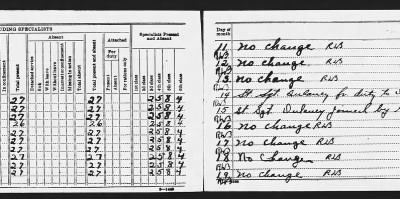 UDING SPECIALISTS
Absent
Attached
Specialists Present and Absent
For duty
In confinement
Total present
Detached service
Sick
With leave
Without leave
Total present and absent
Present
Absent
For rations only
1st class
2d class
3d class
4th class
5th class
6th class
27 27 2 5 8 4
27 27 2 5 8 4
27 27 2 5 8 4
26 26 2 5 8 4
27 27 2 5 8 4
27 27 2 5 8 4
27 27 2 5 8 4
27 27 2 5 8 4
27 27 2 5 8 4
Day of month
11 no change RWB
12 no change. RWB
13 no change RWB
14 St. Sgt. Dulaney for duty to
15 St Sgt Dulaney joined by
16 no change RWB
17 no change RWB
18 No Change RWB
19 no change RWB